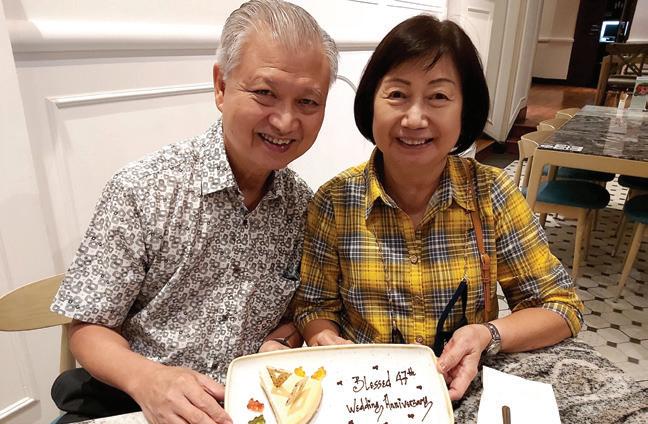 Blessed 47th
Wedding Anniversary